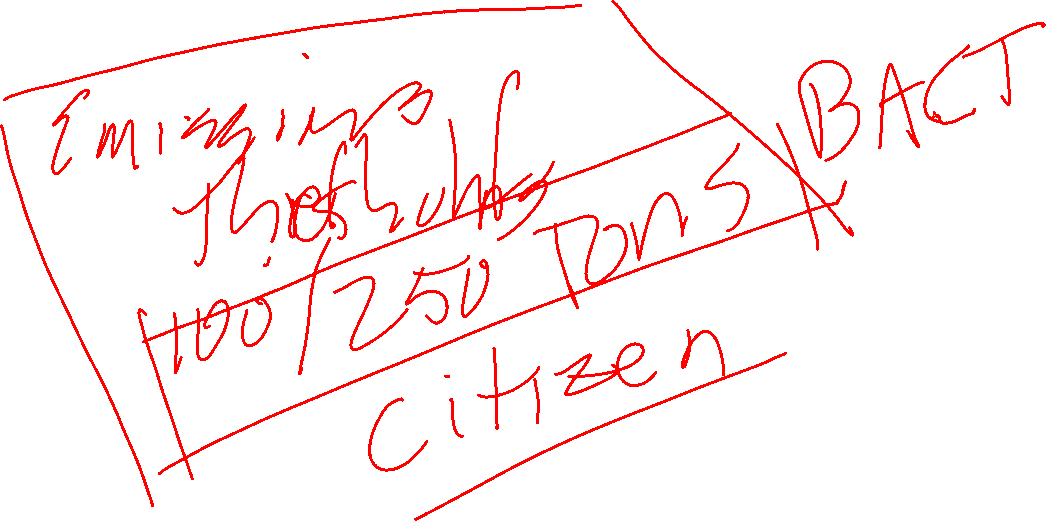 Emissions
Thresholds
100/250 Tons
BACT
Citizen